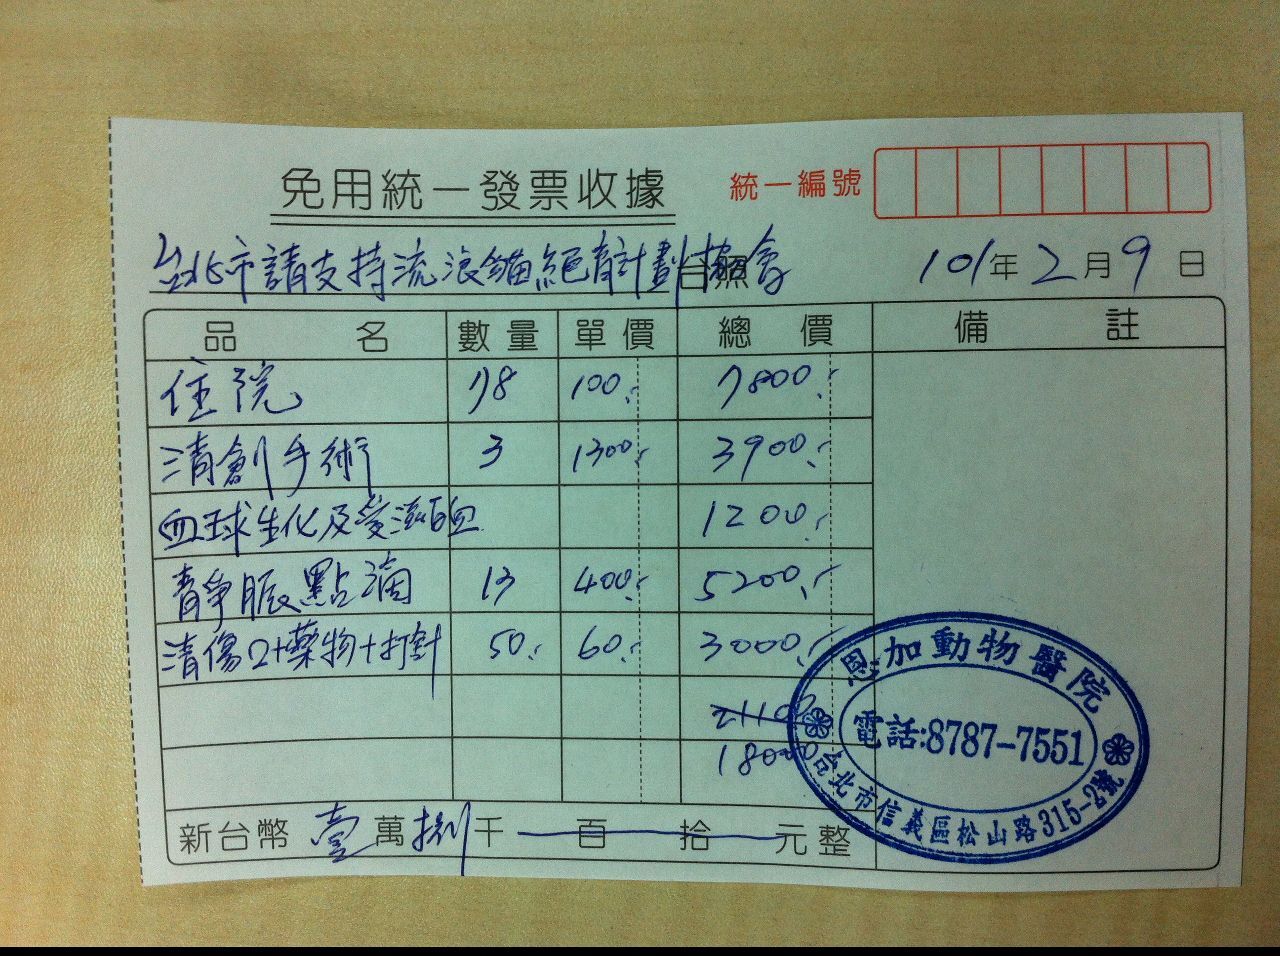 免用統一發票收據 統一編號
台北市請支持流浪貓絕育計劃協會 台照 101年2月9日
品名 數量 單價 總價 備註
住院 78 100.- 7800.-
清創手術 3 1300.- 3900.-
血球生化及愛滋白血 1200.-
靜脈點滴 13 400.- 5200.-
清傷口+藥物+打針 50.- 60.- 3000.-
21100
18000
新台幣 壹萬捌千 百 拾 元整
恩加動物醫院
電話:8787-7551
台北市信義區松山路315-2號